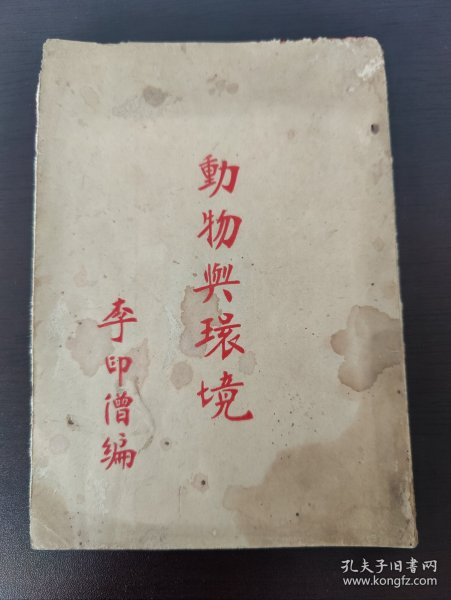 動物與環境
李印僧编
孔夫子旧书网
www.kongfz.com